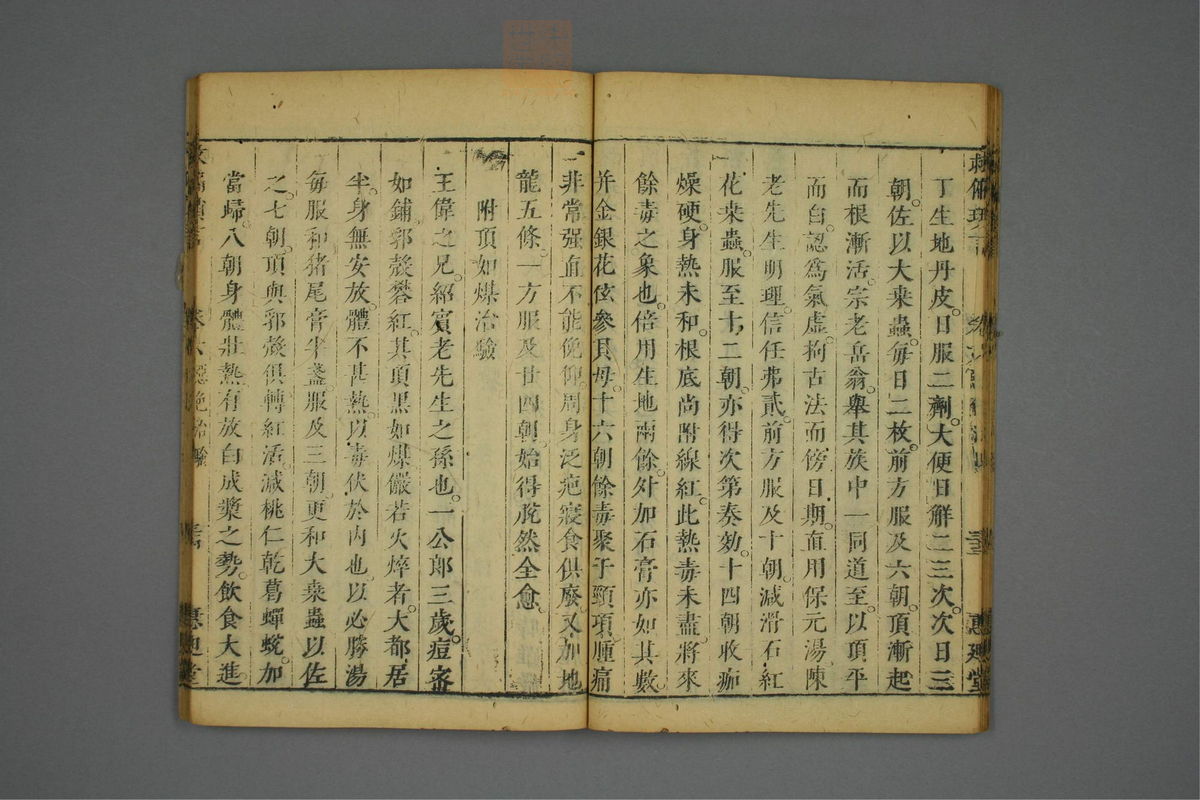 丁生地丹皮。日服二劑。大便日解二三次。次日三
朝。佐以大桒蟲。每日二枚。前方服及六朝。頂漸起
而根漸活。宗老岳翁。舉其族中一同道至。以頂平
而白。認爲氣虛。拘古法而傍日期。直用保元湯。陳
老先生明理。信任弗貳。前方服及十朝。減滑石紅
花桒蟲。服至十二朝。亦得次第奏効。十四朝收痂
燥硬。身熱未和。根底尚附線紅。此熱毒未盡。將來
餘毒之象也。倍用生地兩餘。外加石膏亦如其數。
并金銀花伭參貝母。十六朝餘毒聚于頸項腫痛
非常。强直不能俛仰。周身泛疤。寢食俱廢。又加地
龍五條。一方服及廿四朝。始得脫然全愈。
附頂如煤治驗
王偉之兄。紹賓老先生之孫也。一公郎三歲。痘密
如鋪。郭殼礬紅。其頂黑如煤。儼若火焠者。大都居
半。身無安放。體不甚熱。以毒伏於內也。以必勝湯
每服和猪尾膏半盞。服及三朝。更和大桒蟲以佐
之。七朝。頂與郭殼俱轉紅活。減桃仁乾葛蟬蛻。加
當歸。八朝身體壯熱。有放白成漿之勢。飲食大進。